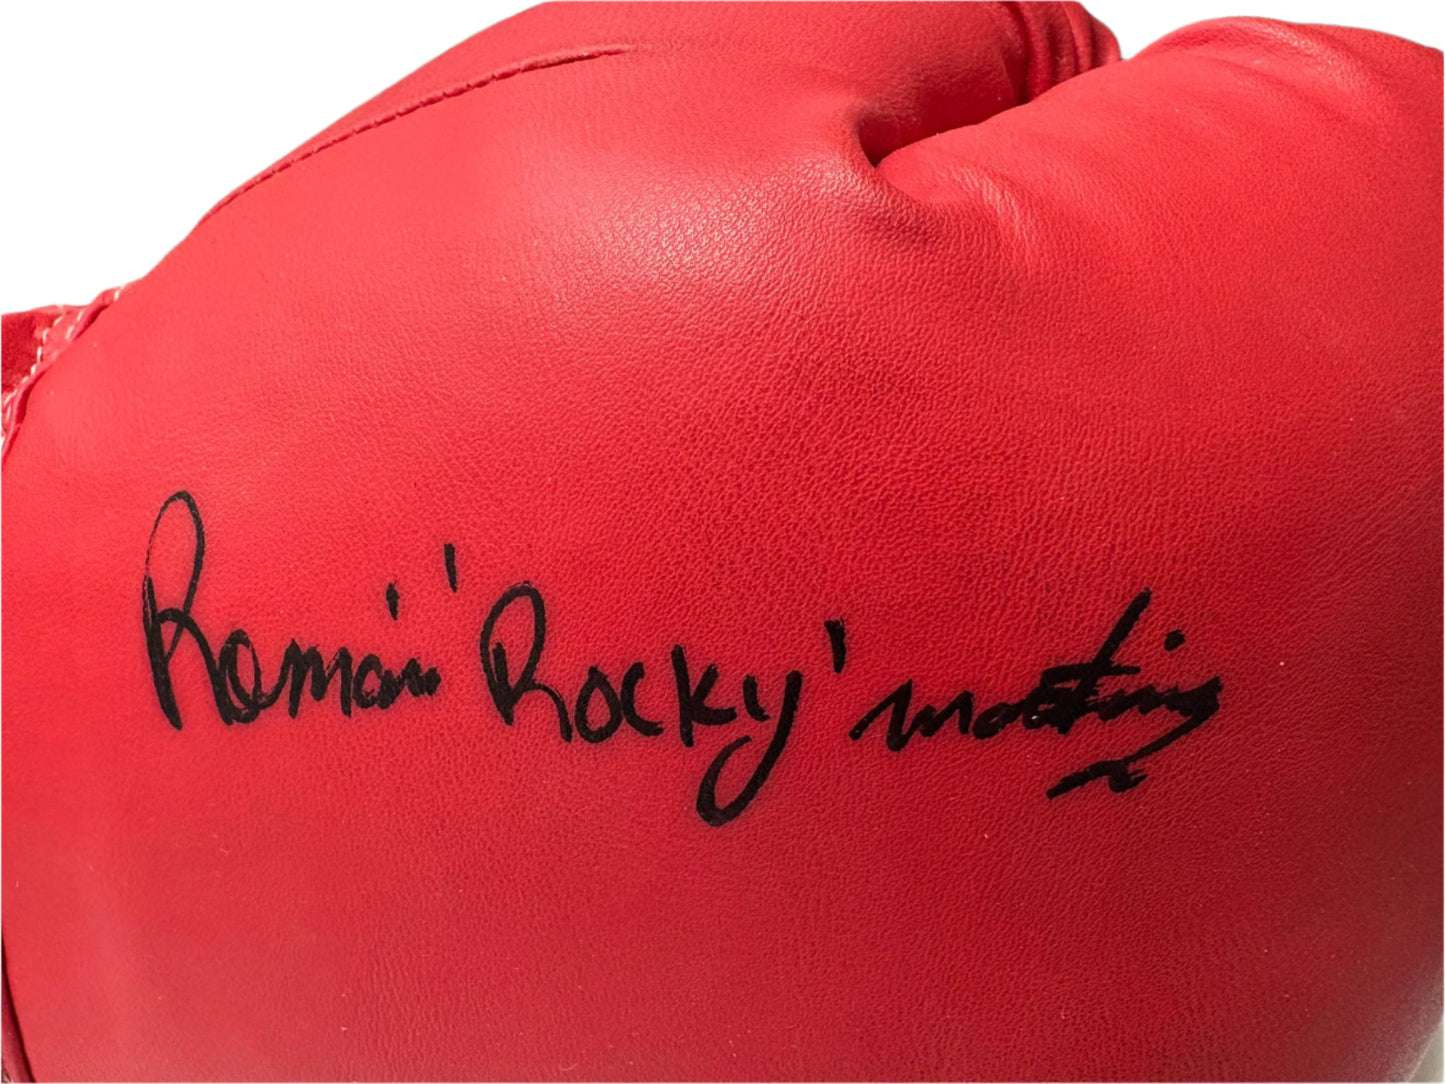 Roman 'Rocky' Martinez